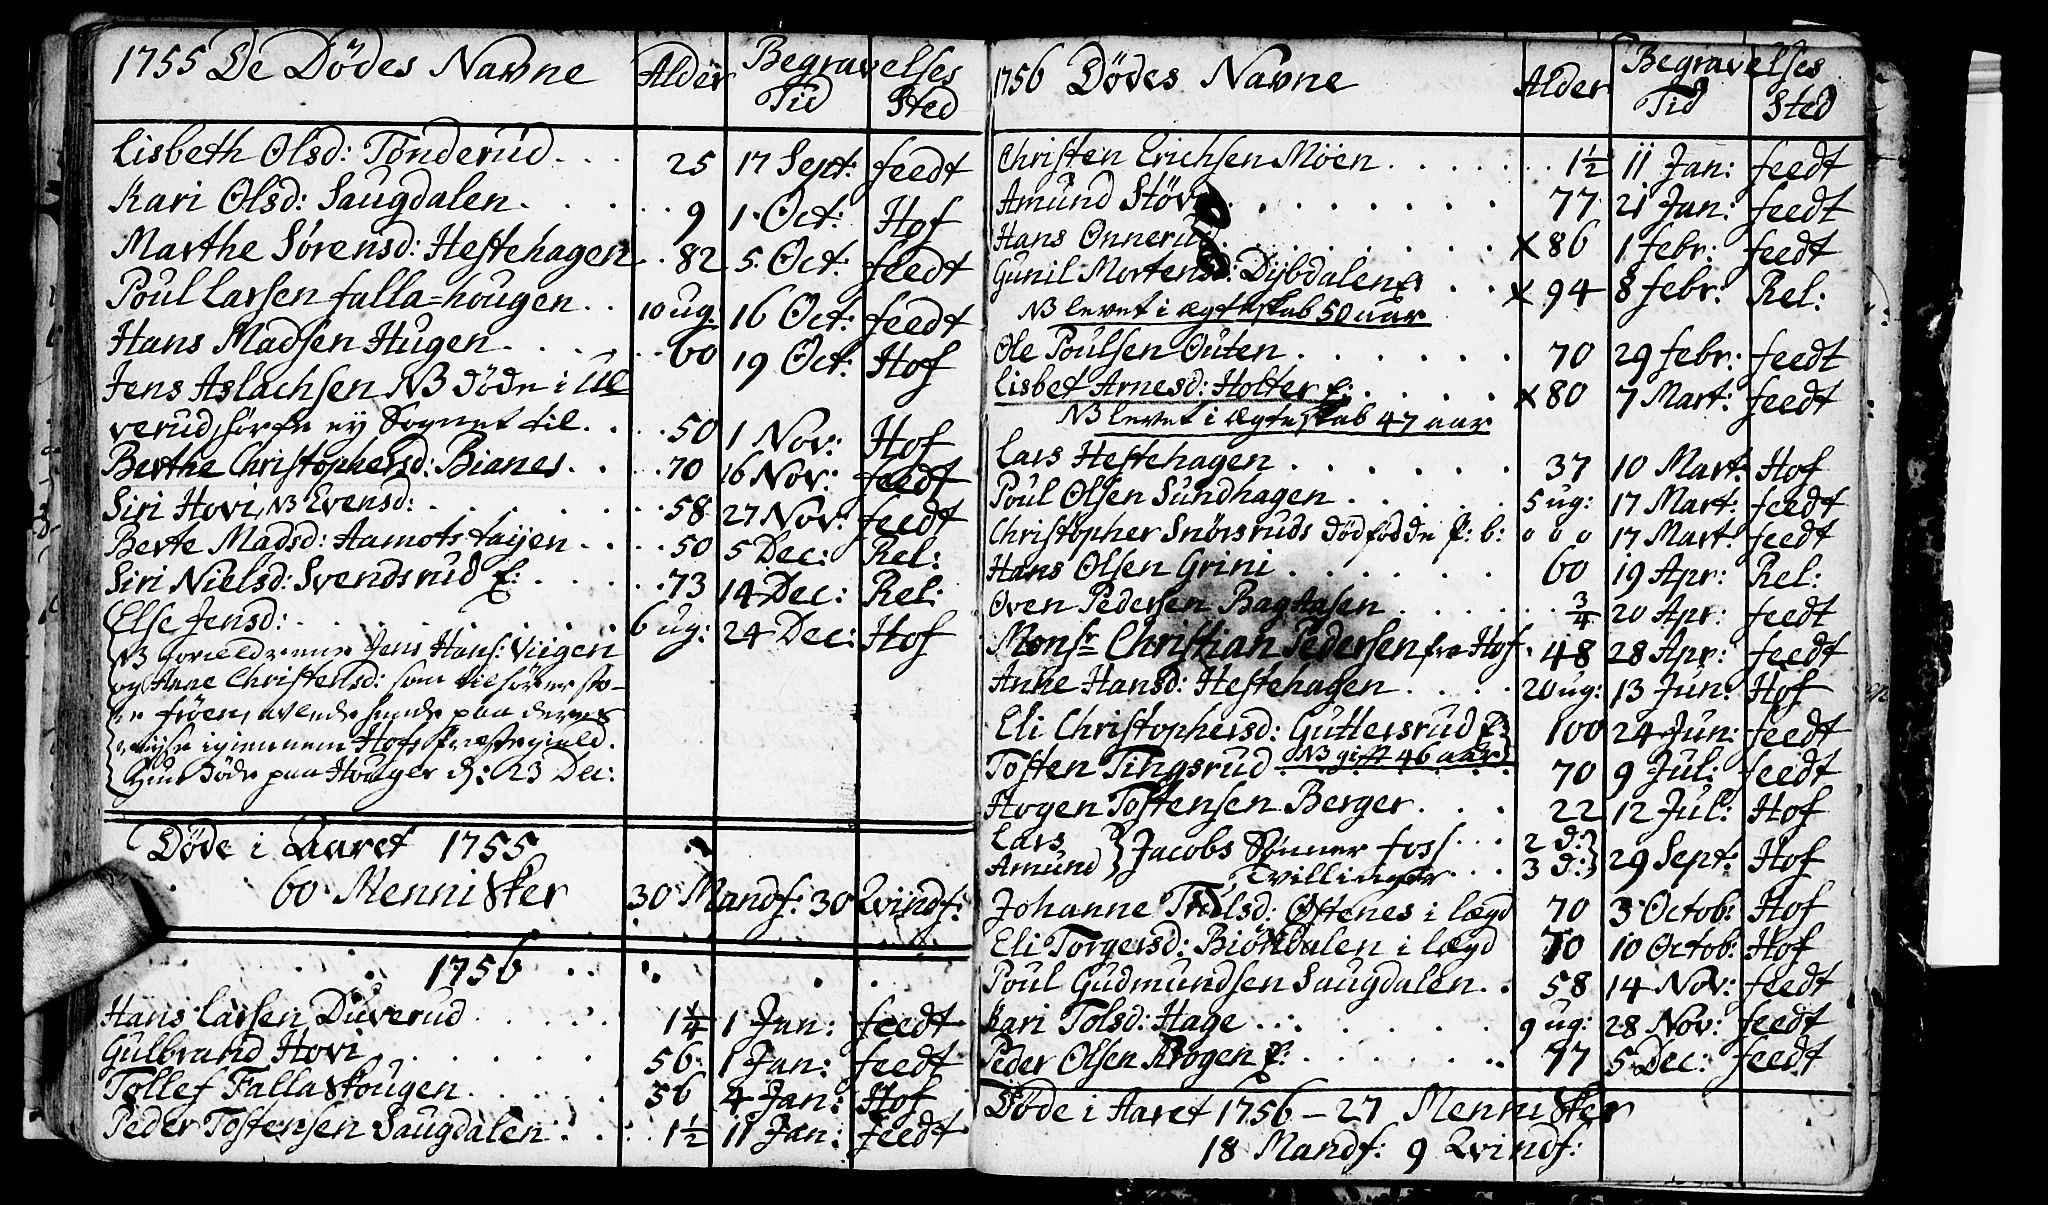 1755 De Dödes Navne Alder Begravelses
Tid Sted
Lisbeth Olsd: Tönderud . . . 25 17 Sept: feedt
Kari Olsd: Saugdalen . . . 9 1 Oct: Hof
Marthe Sörensd: Hestehagen . . 82 5 Oct: feedt
Poul Larsen falla=hougen . . 10 ug. 16 Oct: feedt
Hans Madsen Hugen . . . 60 19 Oct: Hof
Jens Aslachsen NB döde i Ul
verud, hörte ey Sognet til . . . 50 1 Nov: Hof
Berthe Christophersd: Bianes . . 70 16 Nov: feedt
Siri Hovi, NB Evensd: . . . 58 27 Nov: feedt
Berte Madsd: Aamots taijen . . . 50 5 Dec: Rel:
Siri Nielsd: Svendsrud E: . . . 73 14 Dec: Rel:
Else Jensd: . . . 6 ug: 24 Dec: Hof
NB forældrene Jens Hans: Viigen
og Anne Christensd: som tilhörer sto-
re fröen, avlede hende paa deres
reijse igiennem Hofs Præstegield.
Hun döde paa Houger d: 23 Dec:
Döde i Aaret 1755
60 Mennisker 30 Mands: 30 Qvinds:
1756
Hans Larsen Duverud . . . 1¼ 1 Jan: feedt
Gulbrand Hovi . . . 56 1 Jan: feedt
Tollef Fallaskougen . . . 36 4 Jan: Hof
Peder Tostensen Saugdalen . . . 1½ 11 Jan: feedt
1756 Dödes Navne Alder Begravelses
Tid Sted
Christen Erichsen Möen . . . 1½ 11 Jan: feedt
Amund Stöv . . . 77 21 Jan: feedt
Hans Onnerud . . . x 86 1 febr: feedt
Gunil Mortensd: Dybdalen E . . x 94 8 febr: Rel:
NB levet i ægteskab 50 aar
Ole Poulsen Outen . . . 70 29 febr: feedt
Lisbet Arnesd: Holter E: . . . x 80 7 Mart: feedt
NB levet i ægteskab 47 aar
Lars Hestehagen . . . 37 10 Mart: Hof
Poul Olsen Sundhagen . . . 5 ug: 17 Mart: feedt
Christopher Snörsruds dödfödde P: b: 0 0 0 17 Mart: feedt
Hans Olsen Grini . . . 60 19 Apr: Rel:
Oven Pedersen Bagaasen . . . ¾ 20 Apr: feedt
Monsr Christian Pedersen fra Hof . 48 28 Apr: feedt
Anne Hansd: Hestehagen . . . 20 ug: 13 Jun: Hof
Eli Christophersd: Guttersrud E: 100 24 Jun: feedt
NB gift 46 aar
Tosten Tingsrud . . . 70 9 Jul: feedt
Hogen Tostensen Berger . . . 22 12 Jul: Hof
Lars } Jacobs Sönner foss . . . 2 d:
Amund } Tvillinger . . . 3 d: } 29 Sept: Hof
Johanne Troelsd: Östenes i lægd 70 3 Octob: Hof
Eli Torgersd: Biörndalen i lægd 70 10 Octob: Hof
Poul Gudmundsen Saugdalen . . 58 14 Nov: feedt
Kari Tolsd: Hage . . . 9 ug: 28 Nov: feedt
Peder Olsen Krogen E: . . . 77 5 Dec: feedt
Döde i Aaret 1756 – 27 Mennisker
18 Mands: 9 Qvinds: